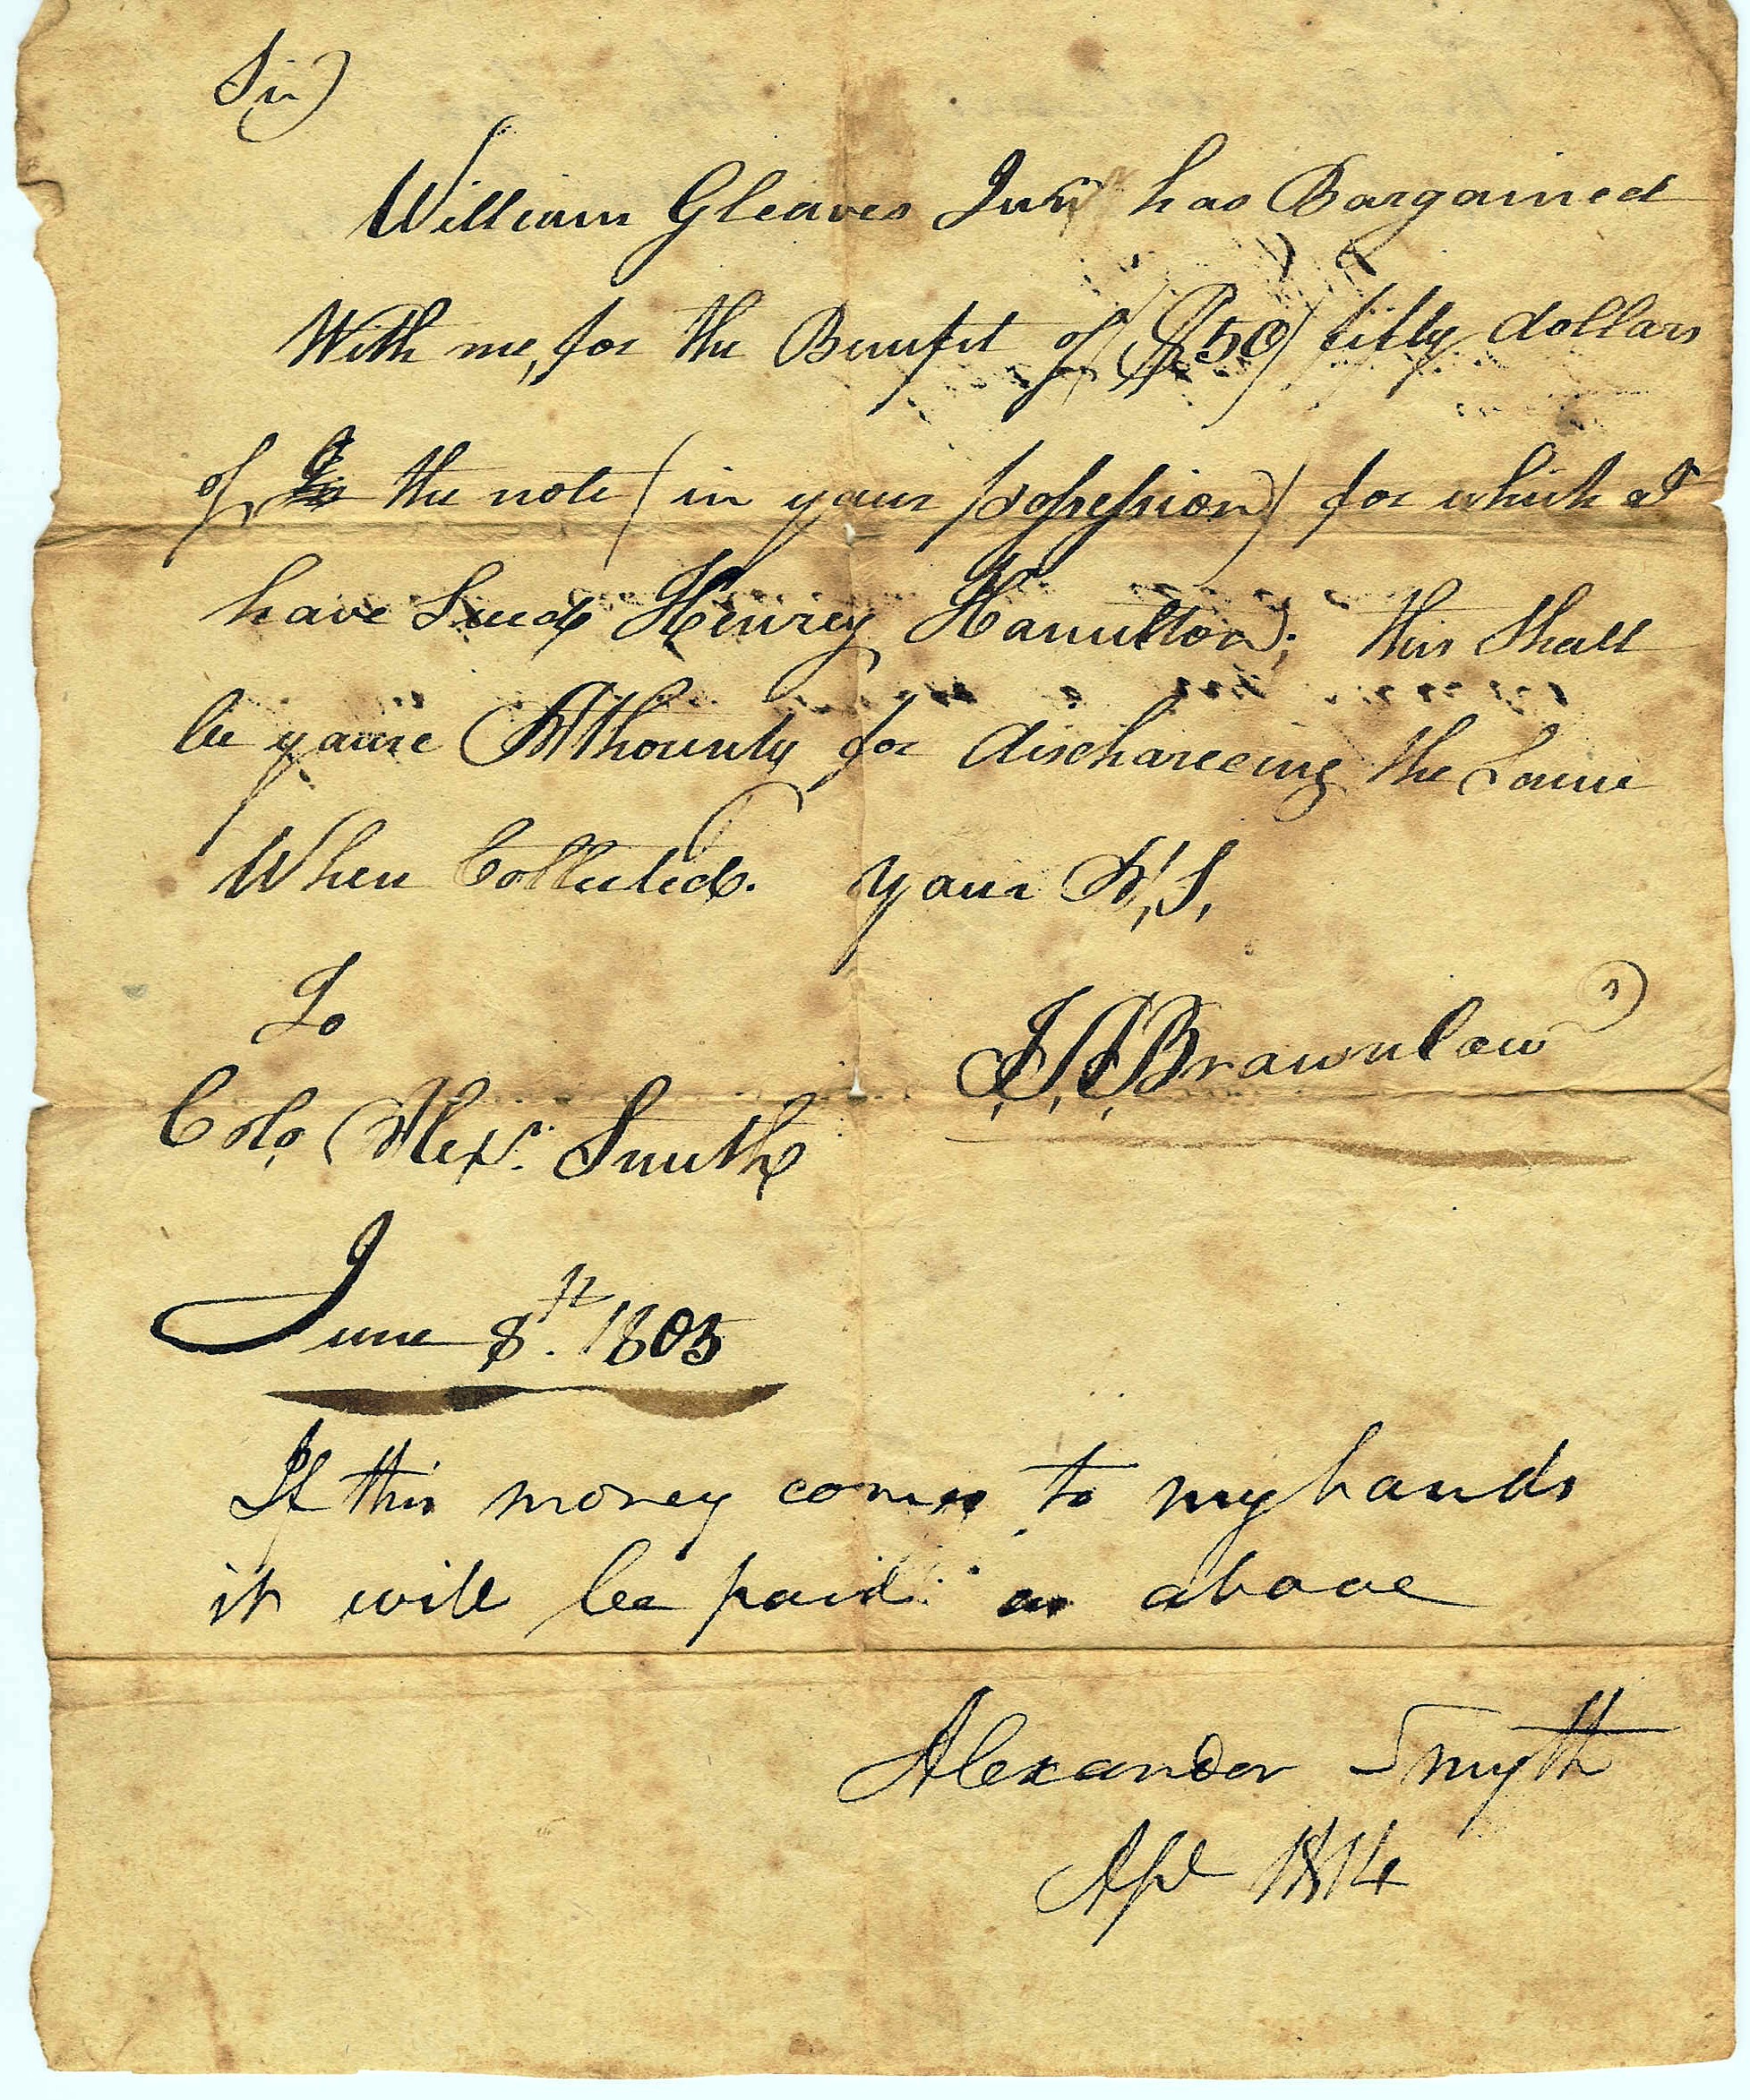 Sir)
William Gleaves Junr has Bargained
With me, for the Benifit of ($50) fifty dollars
of the note (in your possession) for which I
have Sued Henrey Hamilton; this Shall
be youre Athourity for discharceing the Same
When Collected. your H,,S,
To
Colo, Alexr. Smith
J, J, Brownlow
June 8th. 1805
If this money comes to my hands
it will be paid as above
Alexander Smyth
Apl 1814